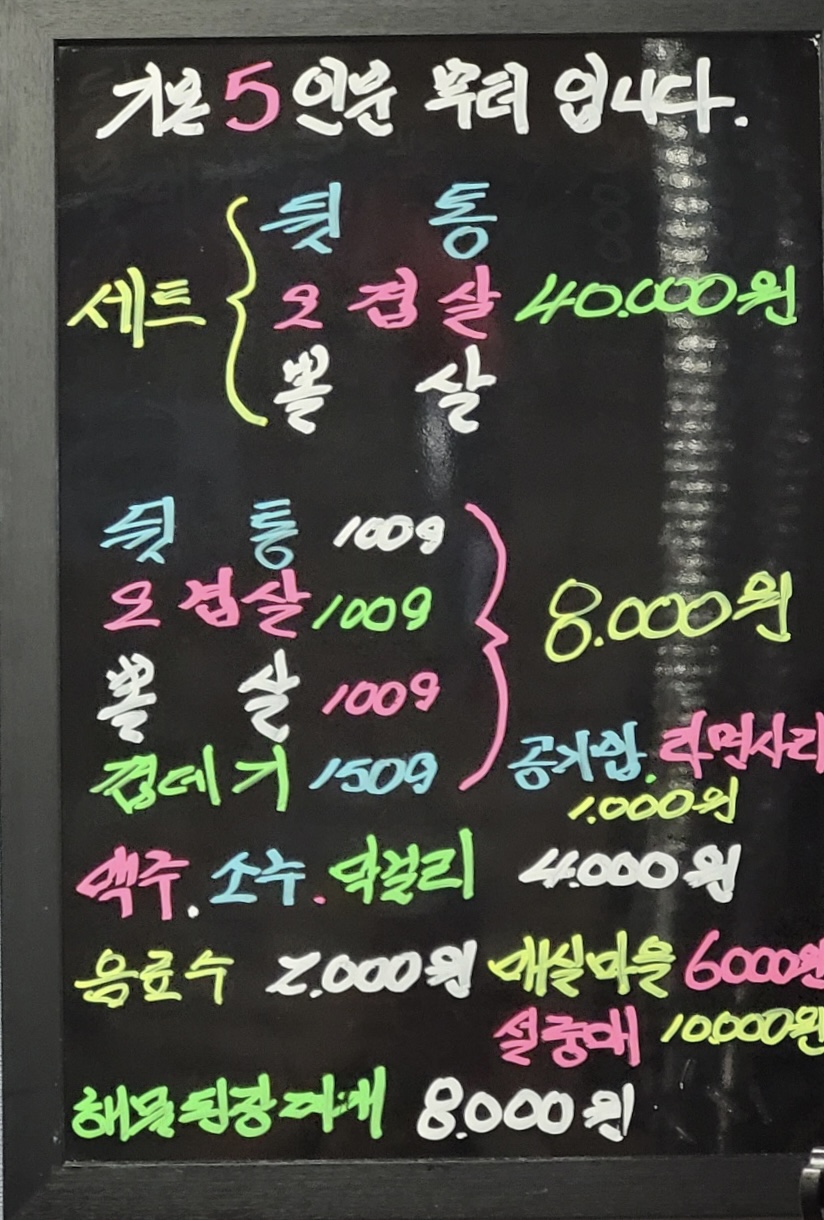 기본 5인분 부터 입니다.
뒷통
세트 오겹살 40.000원
뽈살
뒷통 100g
오겹살 100g
뽈살 100g
8.000원
껍데기 150g
공기밥. 라면사리
1.000원
맥주. 소주. 막걸리 4.000원
음료수 2.000원 매실마을 6000원
설중매 10.000원
해물된장찌개 8.000원